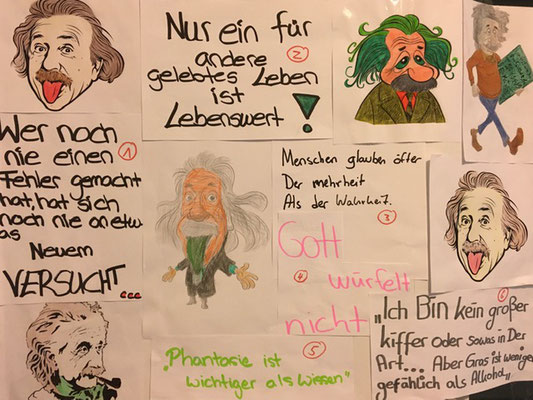 Nur ein für
andere
gelebtes Leben
ist
Lebenswert !
2
Wer noch
nie einen
Fehler gemacht
hat, hat sich
noch nie an etw
as
Neuem
VERSUCHT...
1
Menschen glauben öfter
Der mehrheit
Als der Wahrheit.
3
Gott
würfelt
nicht
4
„Phantasie ist
wichtiger als Wissen"
5
„Ich Bin kein großer
kiffer oder sowas in Der
Art... Aber Gras ist weniger
gefählich als Alkohol„
6